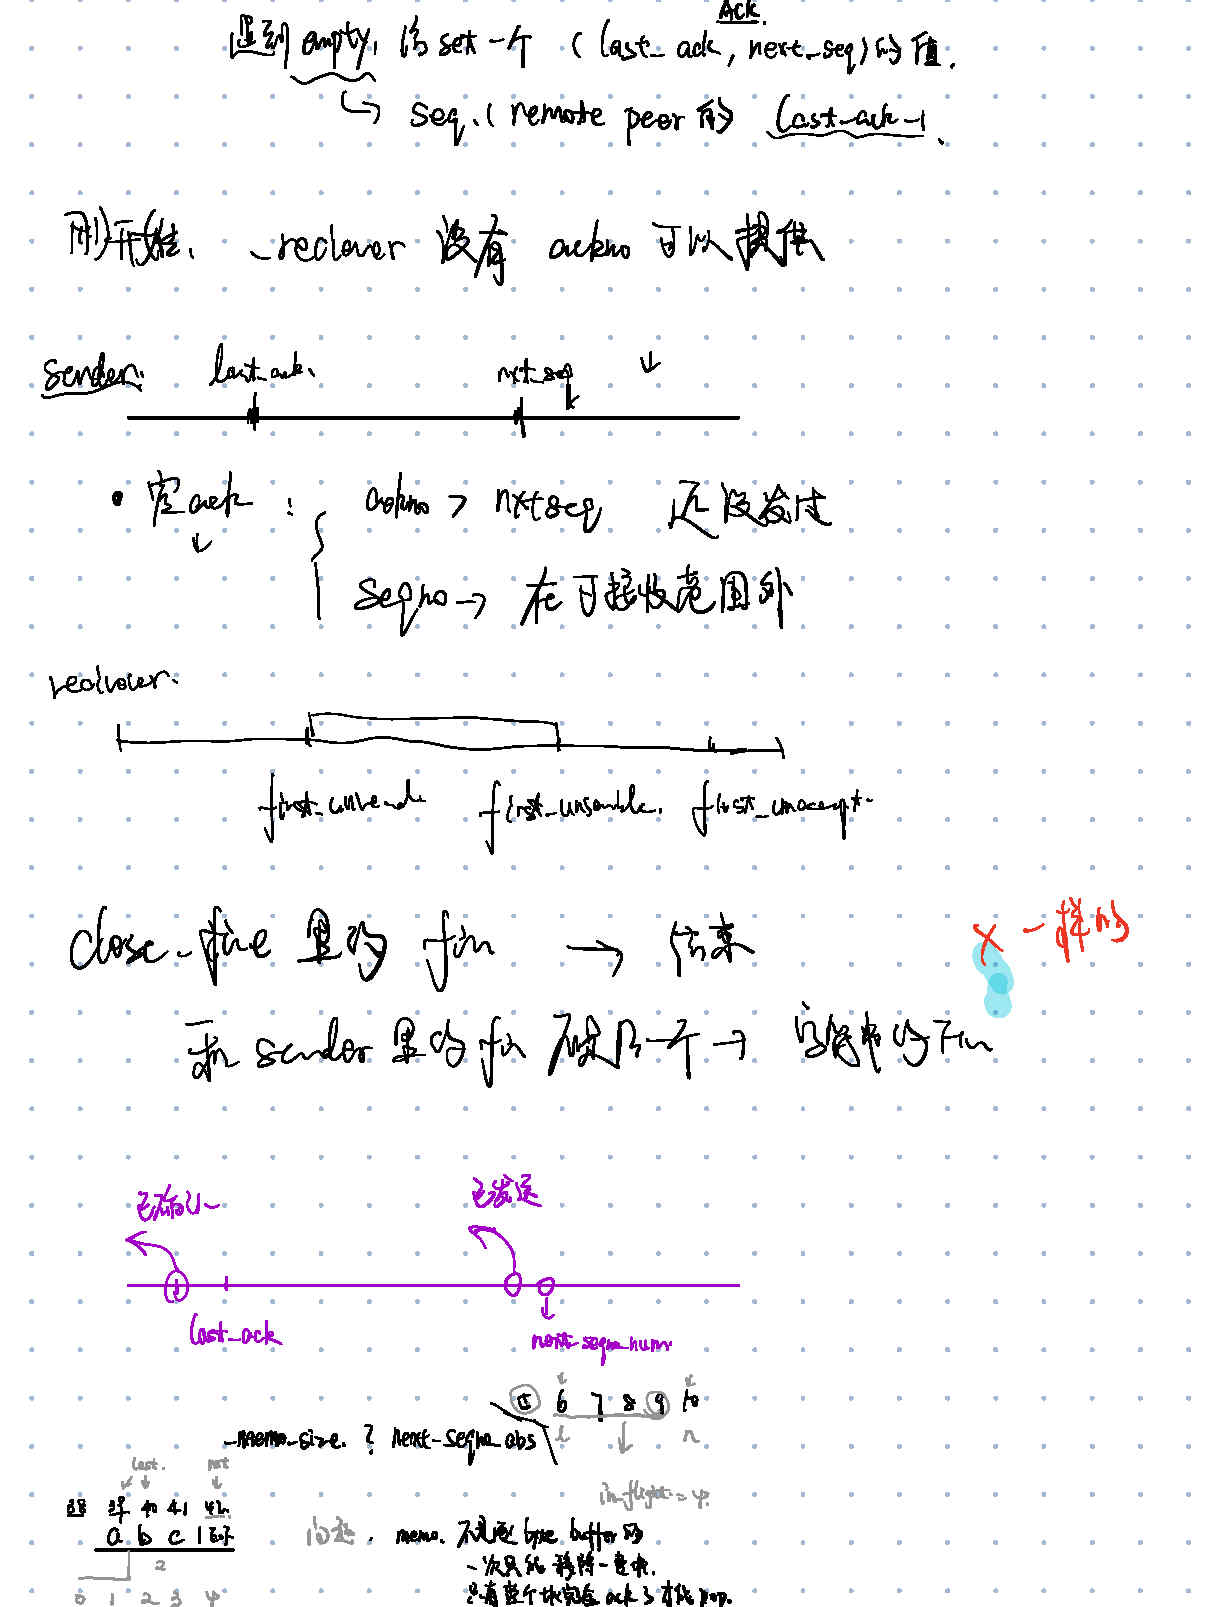 Ack.
遇到 empty, 的 set 一个 (last_ack, next_seq)的值.
↳ seq. ( remote peer 的 last-ack-1
刚开始, _reciever 没有 ackno 可以提供
sender. last_ack. nxt_seq ↓
• 空ack : ackno > nxtseq 还没发过
↓ seqno → 在可接收范围外
reciever.
first_unread first_unsemble. first_unaccept.
close_fine 里的 fin → 结束
x 一样的
和 sender 里的 fin 不是同一个 → 的 Fin
已确认 已发送
last_ack next_seqno_num
5 6 7 8 9 10
_memo_size. ? next_seqno_abs
l n
in_flight = 4.
last. nxt
38 39 40 41 42
a b c
问题. memo. 不是 byte buffer 的
一次只能移除一整块.
只有整个块完全 ack 了才能 pop.
2
0 1 2 3 4